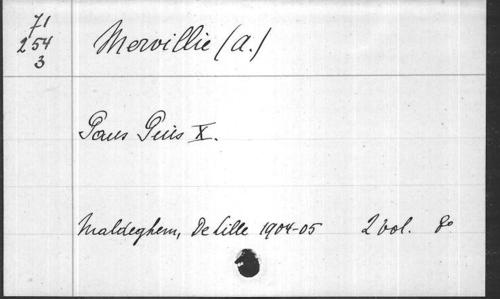 71
254
3
Mervillie (A.)
Paus Pius X.
Maldeghem, De Lille 1904-05 2 vol. 8°